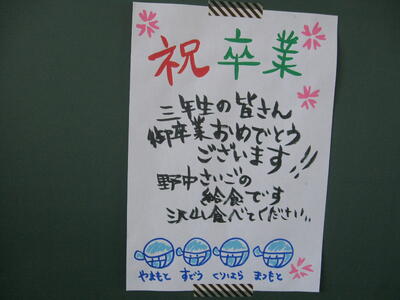 祝卒業
三年生の皆さん
御卒業おめでとう
ございます!!
野中さいごの
給食です
沢山食べてください..
やまもと すどう くりはら まつもと